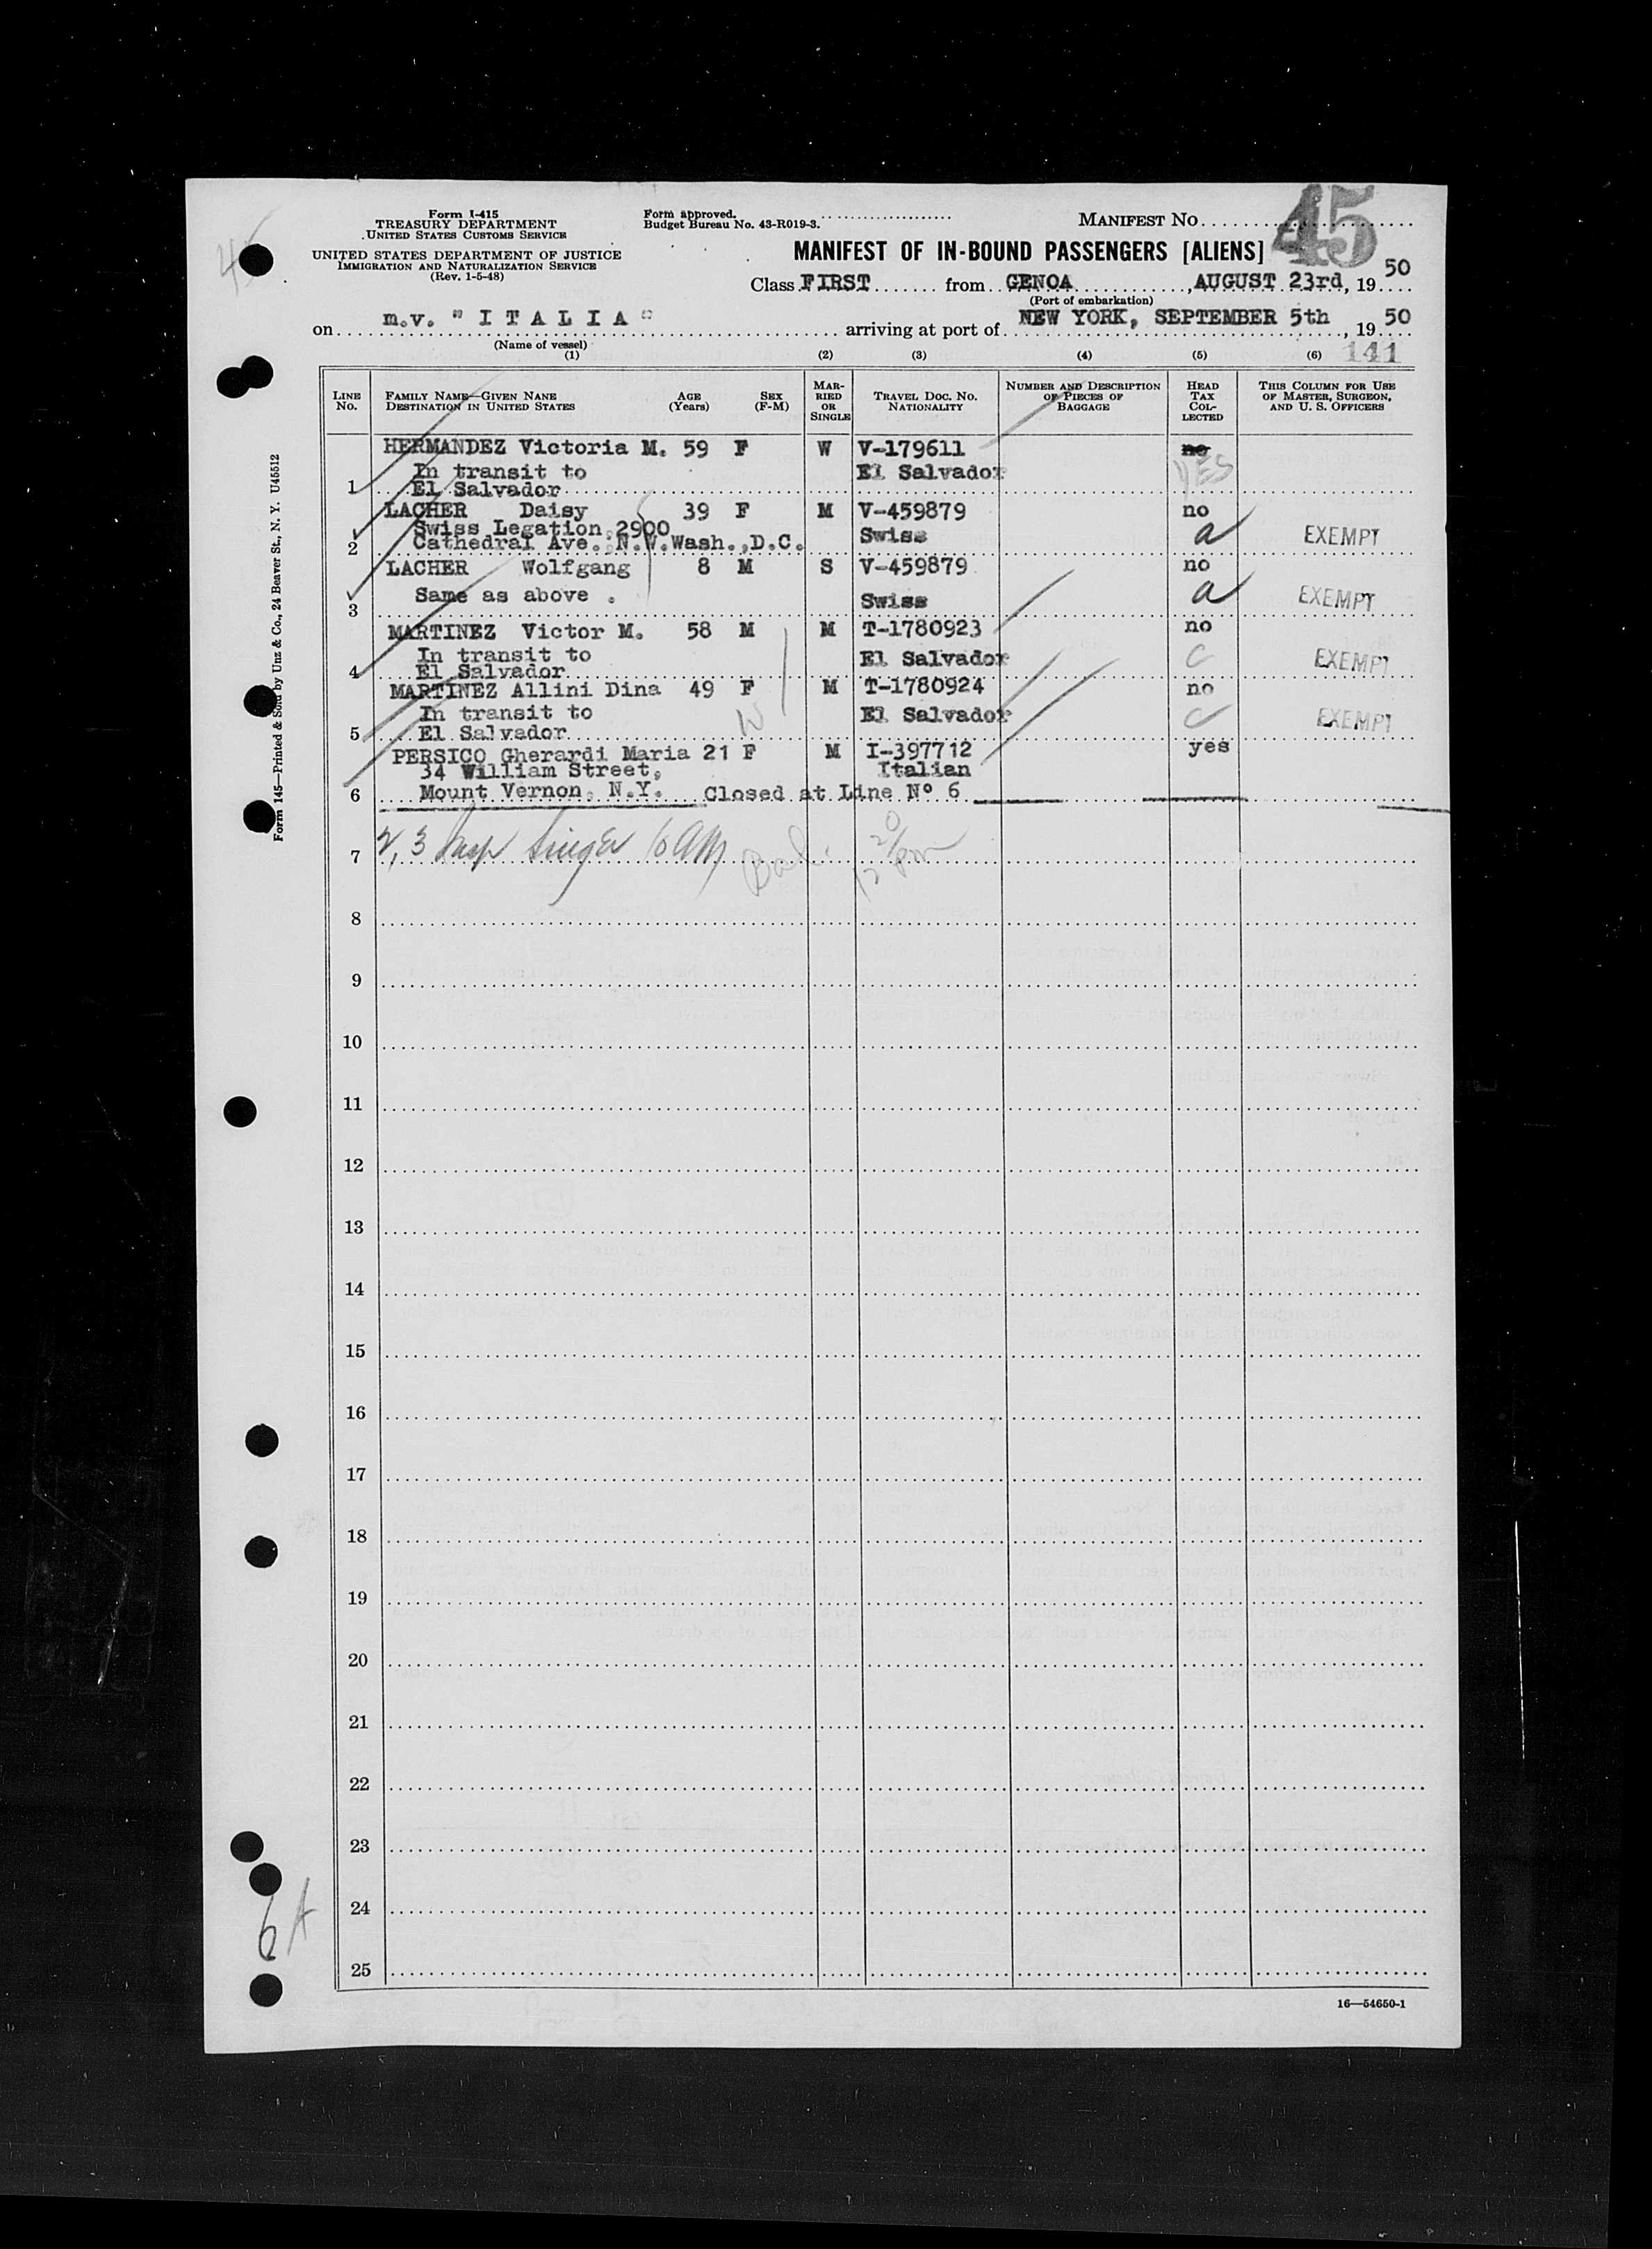 45
Form I-415
TREASURY DEPARTMENT
UNITED STATES CUSTOMS SERVICE
UNITED STATES DEPARTMENT OF JUSTICE
IMMIGRATION AND NATURALIZATION SERVICE
(Rev. 1-5-48)
Form approved.
Budget Bureau No. 43-R019-3.
MANIFEST NO. 45
MANIFEST OF IN-BOUND PASSENGERS [ALIENS]
Class FIRST from GENOA, AUGUST 23rd, 1950
(Port of embarkation)
on m.v. "ITALIA" arriving at port of NEW YORK, SEPTEMBER 5th, 1950
(Name of vessel)
(1) (2) (3) (4) (5) (6) 141
LINE NO. FAMILY NAME—GIVEN NANE DESTINATION IN UNITED STATES AGE (Years) SEX (F-M) MARRIED OR SINGLE TRAVEL DOC. NO. NATIONALITY NUMBER AND DESCRIPTION OF PIECES OF BAGGAGE HEAD TAX COLLECTED THIS COLUMN FOR USE OF MASTER, SURGEON, AND U. S. OFFICERS
HERMANDEZ Victoria M. 59 F W V-179611 no
In transit to El Salvador YES
1 El Salvador
LACHER Daisy 39 F M V-459879 no
Swiss Legation 2900 Swiss a EXEMPT
2 Cathedral Ave. N.W.Wash.,D.C.
LACHER Wolfgang 8 M S V-459879 no
Same as above . Swiss a EXEMPT
3
MARTINEZ Victor M. 58 M M T-1780923 no
In transit to El Salvador C EXEMPT
4 El Salvador
MARTINEZ Allini Dina 49 F M T-1780924 no
In transit to El Salvador C EXEMPT
5 El Salvador W
PERSICO Gherardi Maria 21 F M I-397712 yes
34 William Street, Italian
6 Mount Vernon, N.Y. Closed at Line Nº 6
7 2, 3 Insp Singer 10 AM
8
9
10
11
12
13
14
15
16
17
18
19
20
21
22
23
24
25
6A
16—54650-1
Form 145—Printed & Sold by Unz & Co., 24 Beaver St., N. Y. U45512